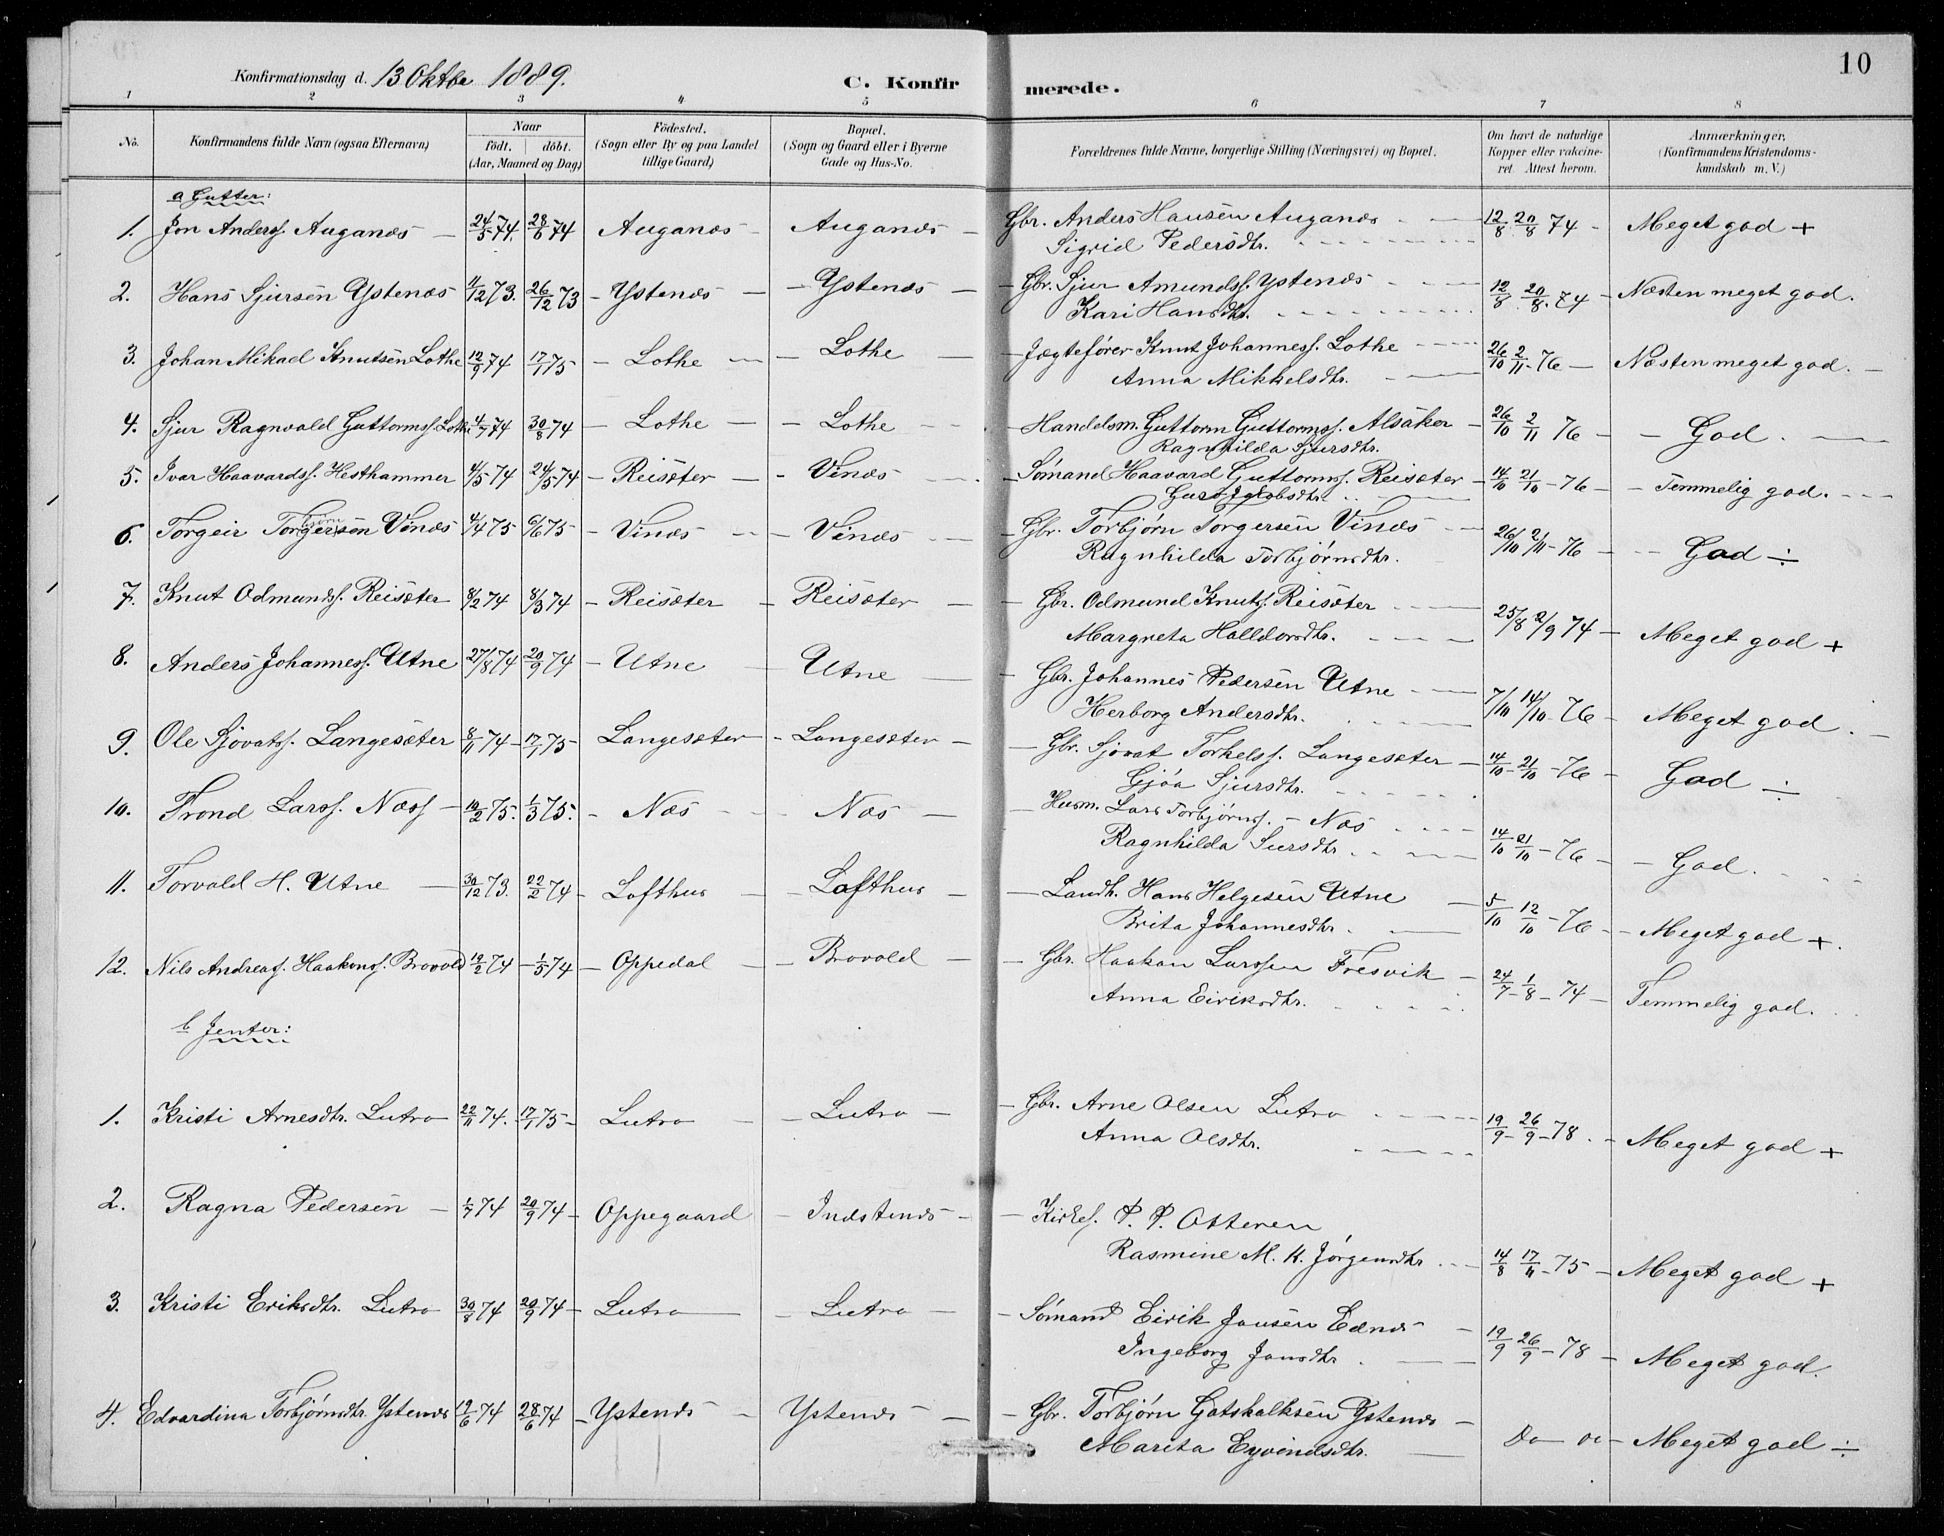 10
Konfirmationsdag d. 13 Oktbe 1889.
C. Konfirmerede.
1 2 3 4 5 6 7 8
No.
Konfirmandens fulde Navn (ogsaa Efternavn)
Naar
födt. döbt.
(Aar, Maaned og Dag)
Födested.
(Sogn eller By og paa Landet
tillige Gaard)
Bopæl.
(Sogn og Gaard eller i Byerne
Gade og Hus-No.
Forældrenes fulde Navne, borgerlige Stilling (Næringsvei) og Bopæl.
Om havt de naturlige
Kopper eller vakcine-
ret. Attest herom.
Anmærkninger.
(Konfirmandens Kristendoms-
kundskab m. V.)
a Gutter:
1. Jon Anderss. Auganæs 24/5 74. 28/6 74 Auganæs Auganæs Gbr. Anders Hansen Auganæs 12/8 20/8 74 Meget god +
Sigrid Pedersdtr.
2. Hans Sjursen Ystenæs 11/12 73. 26/12 73 Ystenæs Ystenæs Gbr. Sjur Amundss. Ystenæs 12/8 20/8 74 Næsten meget god.
Kari Hansdtr.
3. Johan Mikael Knutsen Lothe 12/9 74 17/1 75 Lothe Lothe Jægtefører Knut Johanness. Lothe 26/10 2/11 76 Næsten meget god.
Anna Mikkelsdtr.
4. Sjur Ragnvald Guttormss. Lothe 4/7 74 30/8 74 Lothe Lothe Handelsm. Guttorm Guttormss. Alsåker 26/10 2/11 76 God.
Ragnhilda Sjursdtr.
5. Ivar Haavardss. Hesthammer 4/5 74 24/5 74 Reisæter Vinæs Sømand Haavard Guttormss. Reisæter 14/10 21/10 76 Temmelig god.
Guro Jakobsdtr.
6. Torgeir Torgersen Vinæs 4/4 75 6/6 75 Vinæs Vinæs Gbr. Torbjørn Torgersen Vinæs 26/10 2/11 76 God ÷
Ragnhilda Torbjørnsdtr.
7. Knut Odmundss. Reisæter 8/2 74 8/3 74 Reisæter Reisæter Gbr. Odmund Knutss. Reisæter 25/8 2/9 74 Meget god +
Margreta Halldorsdtr.
8. Anders Johanness. Utne 27/8 74 20/9 74 Utne Utne Gbr. Johannes Pedersen Utne 7/10 14/10 76 Meget god.
Herborg Andersdtr.
9. Ole Sjovatss. Langesæter 8/11 74 17/1 75 Langesæter Langesæter Gbr. Sjovat Torkelss. Langesæter 14/10 21/10 76 God ÷
Gjøa Sjursdtr.
10. Trond Larss. Næss 10/2 75. 1/3 75. Næs Næs Husm. Lars Torbjørnss. Næs 14/10 21/10 76 God.
Ragnhilda Sursdtr.
11. Torvald H. Utne 30/12 73. 22/2 74 Lofthus Lofthus Landh. Hans Helgesen Utne 5/10 12/10 76 Meget god +.
Brita Johannesdtr.
12. Nils Andreas Haakonss. Brovold 19/2 74 1/5 74 Oppedal Brovold Gbr. Haakon Larssen Fresvik 24/7 1/8 74 Temmelig god.
Anna Eiriksdtr.
b Jenter:
1. Kristi Arnesdtr. Lutro 22/11 74. 17/1 75 Lutro Lutro Gbr. Arne Olsen Lutro 19/9 26/9 78. Meget god +
Anna Olsdtr.
2. Ragna Pedersen 1/7 74 20/9 74 Oppegaard Indstenæs Kirkes. P. P. Otteren
Rasmine M. K. Jørgensdtr 14/8 17/11 75 Meget god +
3. Kristi Eriksdtr. Lutro 30/8 74 20/9 74 Lutro Lutro Sømand Eirik Jansen Ednæs 19/9 26/9 78 Meget god.
Ingeborg Jansdtr.
4. Edvardina Torbjørnsdtr. Ystenæs 19/6 74 28/6 74 Ystenæs Ystenæs Gbr. Torbjørn Gotskalksen Ystenæs Do Do Meget god ÷
Marita Eyvindsdtr.